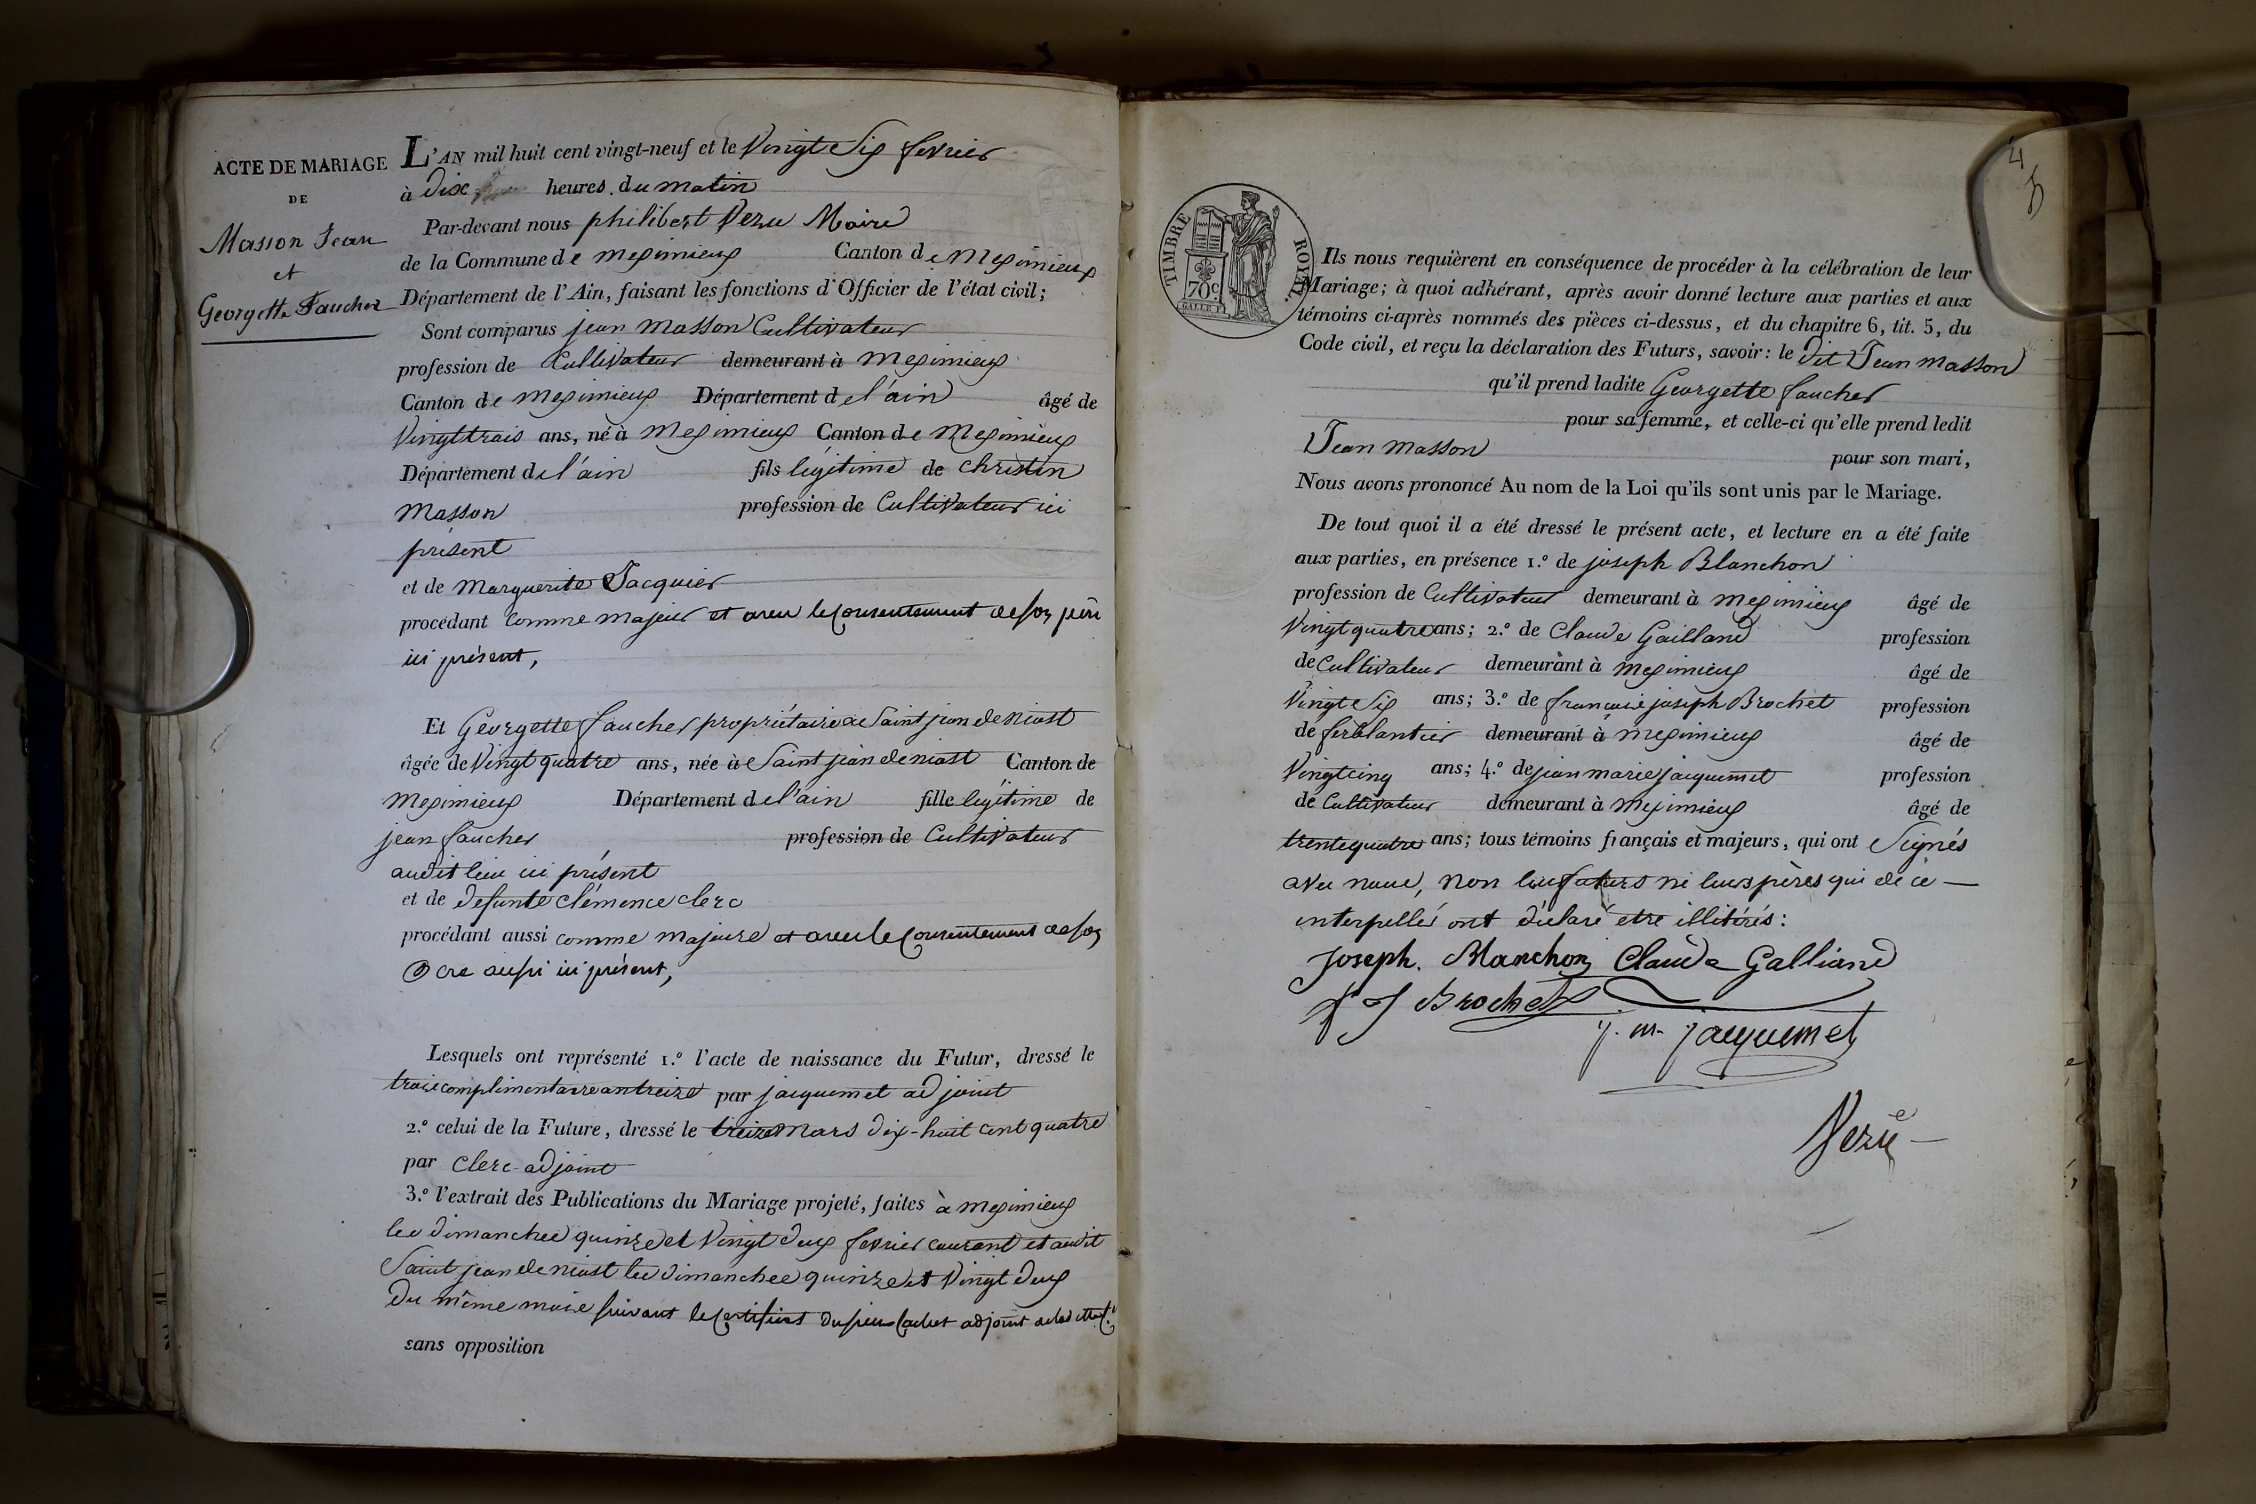 ACTE DE MARIAGE
DE
Masson Jean
et
Georgette Faucher
L'AN mil huit cent vingt-neuf et le Vingt Six fevrier
à dix heures du matin
Par-devant nous philibert Vezu Maire
de la Commune de meximieux Canton de Meximieux
Département de l'Ain, faisant les fonctions d'Officier de l'état civil;
Sont comparus jean masson Cultivateur
profession de Cultivateur demeurant à Meximieux
Canton de meximieux Département de l'ain âgé de
Vingttrois ans, né à Meximieux Canton de Meximieux
Département de l'ain fils légitime de christin
masson profession de Cultivateur ici
présent
et de Marguerite Jacquier
procédant comme majeur et avec le consentement de son père
ici présent,
Et Georgette faucher propriétaire de Saint jean de niost
âgée de Vingt quatre ans, née à Saint jean de niost Canton de
meximieux Département de l'ain fille légitime de
jean faucher profession de Cultivateur
audit lieu ici présent
et de defunte clémence clerc
procédant aussi comme majeure et avec le consentement de son
Père aussi ici présent,
Lesquels ont représenté 1.º l'acte de naissance du Futur, dressé le
trois complimentaire an treize par jacquemet adjoint
2.º celui de la Future, dressé le treize Mars dix-huit cent quatre
par Clerc adjoint
3.º l'extrait des Publications du Mariage projeté, faites à meximieux
les dimanches quinze et Vingt deux fevrier courant et audit
Saint jean de niost les dimanches quinze et Vingt deux
du même mois suivant le certificat du sieur adjoint
sans opposition
4
TIMBRE ROYAL
70c.
Ils nous requièrent en conséquence de procéder à la célébration de leur
Mariage; à quoi adhérant, après avoir donné lecture aux parties et aux
témoins ci-après nommés des pièces ci-dessus, et du chapitre 6, tit. 5, du
Code civil, et reçu la déclaration des Futurs, savoir: le dit Jean masson
qu'il prend ladite Georgette faucher
pour sa femme, et celle-ci qu'elle prend ledit
Jean masson pour son mari,
Nous avons prononcé Au nom de la Loi qu'ils sont unis par le Mariage.
De tout quoi il a été dressé le présent acte, et lecture en a été faite
aux parties, en présence 1.º de joseph Blanchon
profession de Cultivateur demeurant à meximieux âgé de
Vingt quatre ans; 2.º de Claude Gailland profession
de Cultivateur demeurant à meximieux âgé de
Vingt Six ans; 3.º de françois joseph Brochet profession
de ferblantier demeurant à meximieux âgé de
Vingtcinq ans; 4.º de jean marie jacquemet profession
de Cultivateur demeurant à meximieux âgé de
trentequatre ans; tous témoins français et majeurs, qui ont Signés
avec nous, non les futurs ni leurs pères qui de ce
interpellés ont déclaré etre illitérés:
Joseph. Blanchon Claude Galliand
f J Brochet
j. m. jacquemet
Vezu